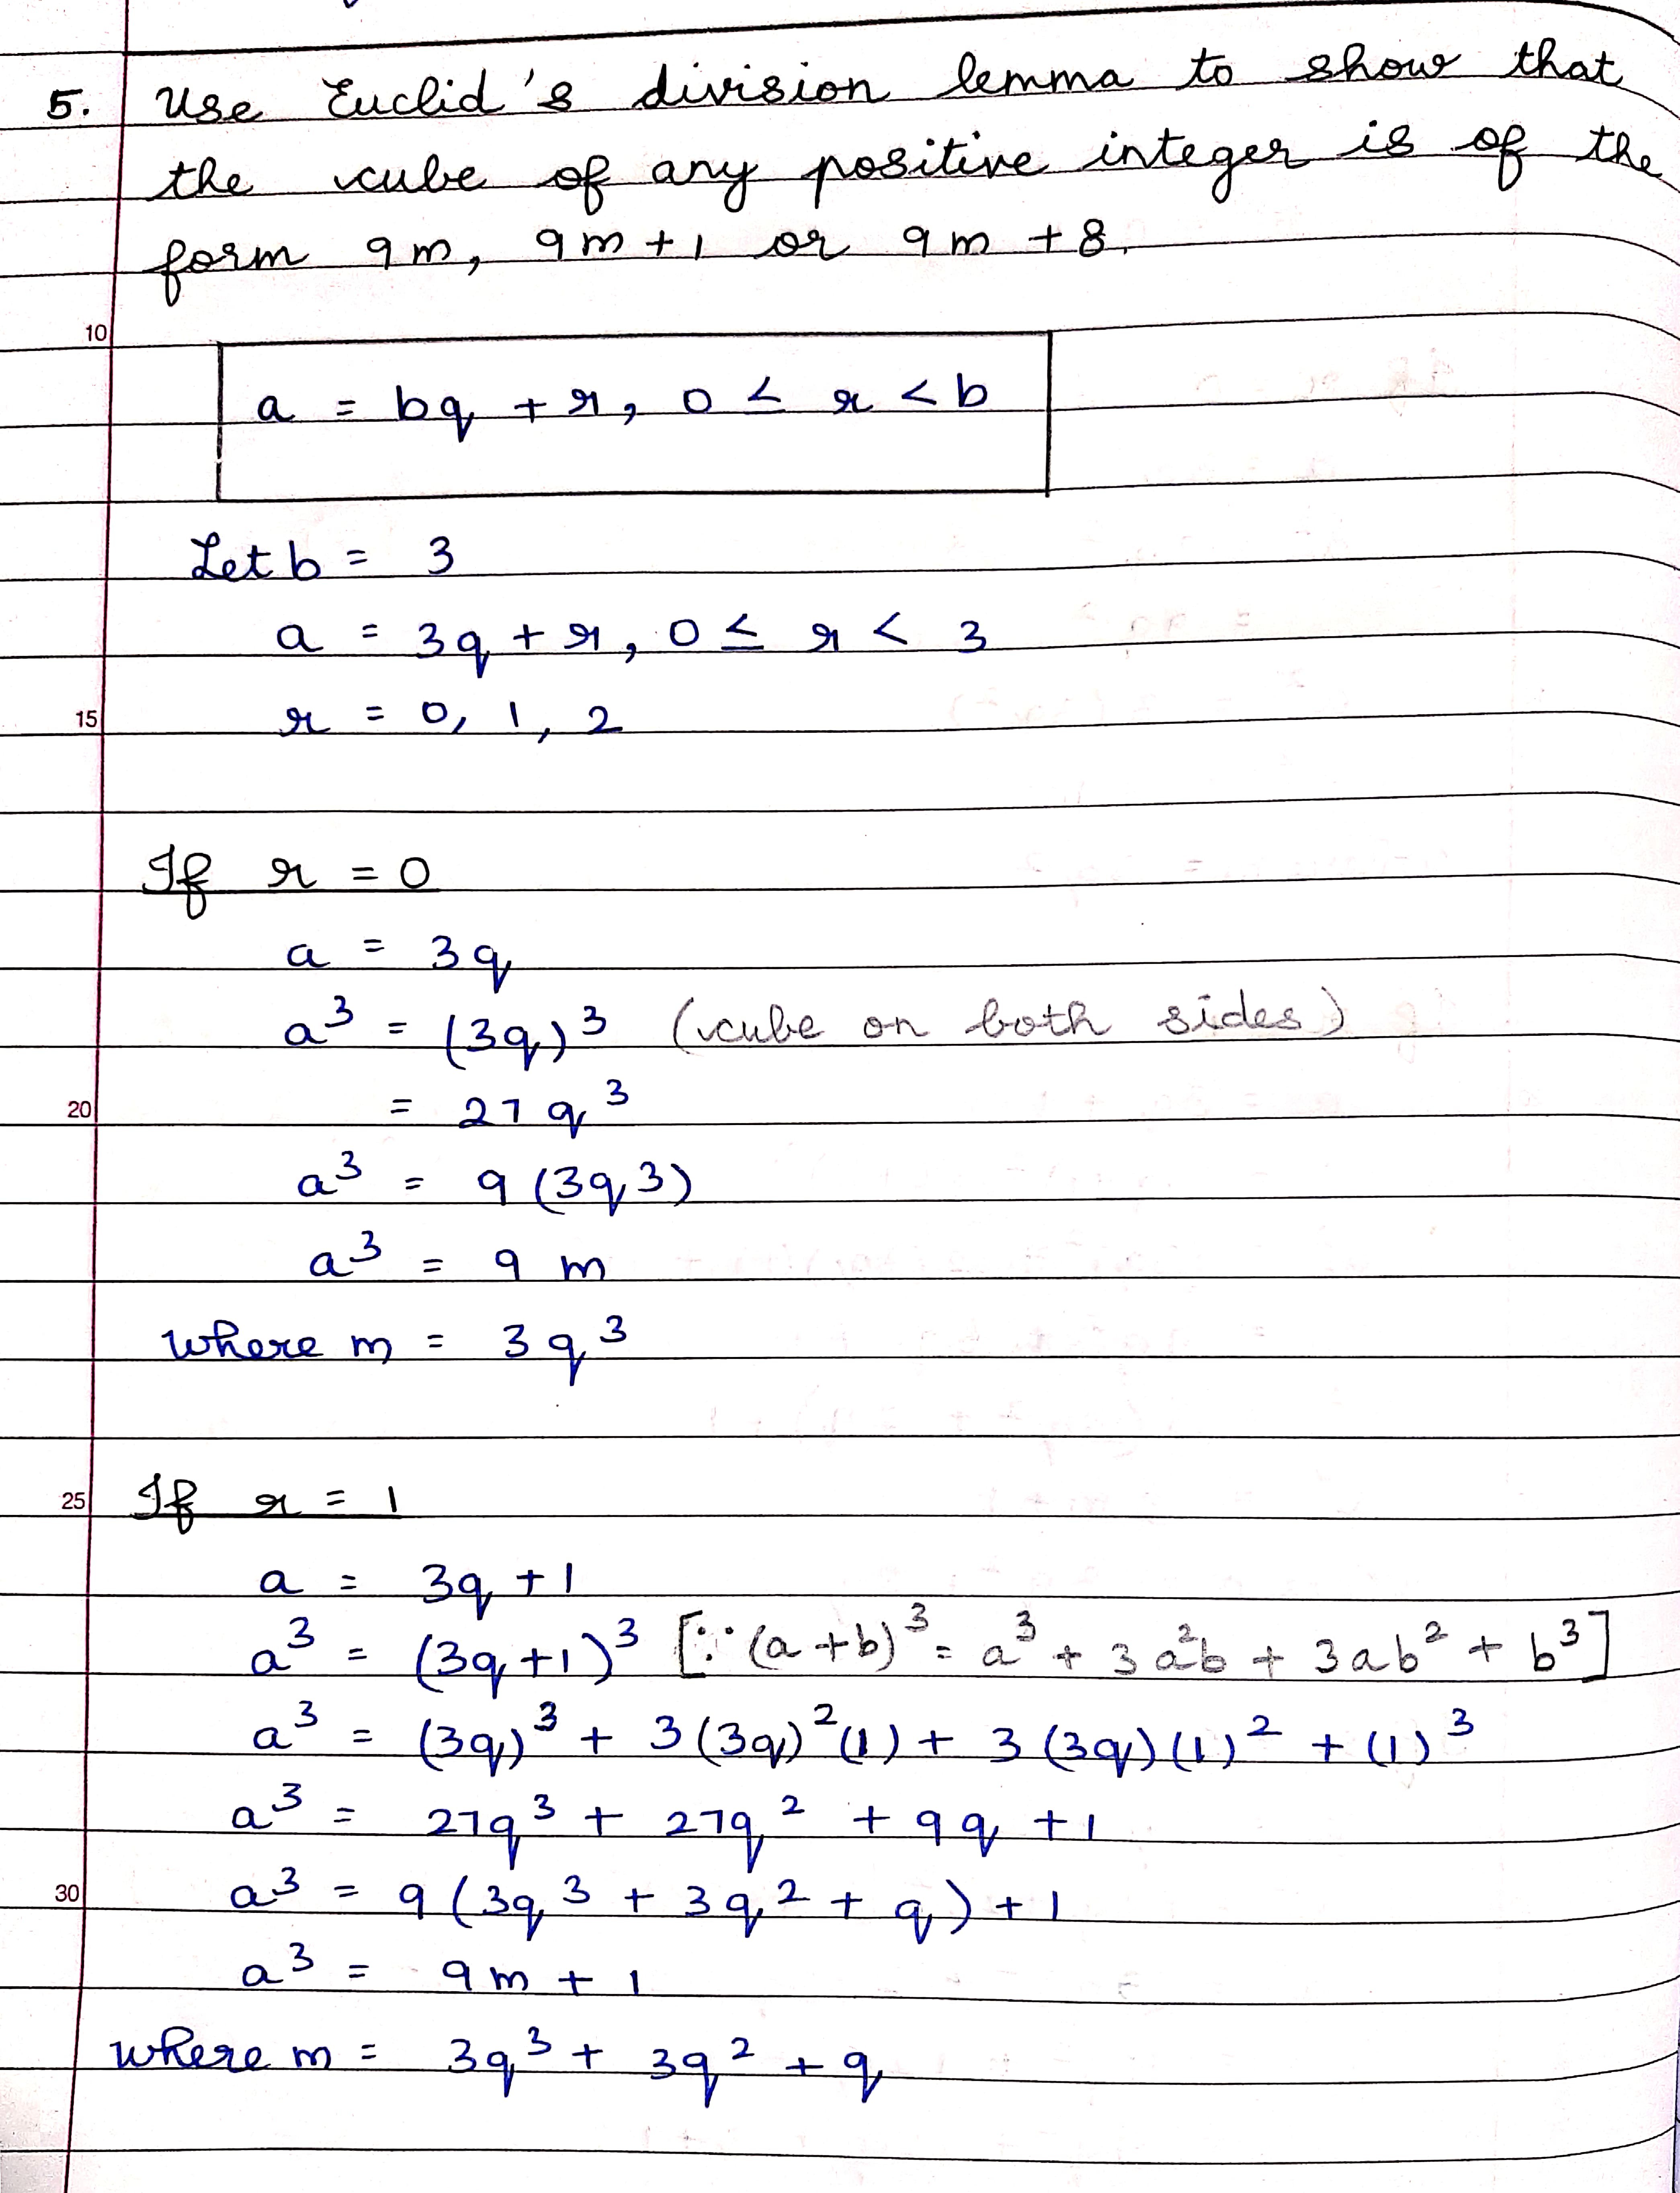 5. Use Euclid's division lemma to show that
the cube of any positive integer is of the
form 9m, 9m + 1 or 9m + 8.
10
a = bq + r, 0 ≤ r < b
Let b = 3
a = 3q + r, 0 ≤ r < 3
15 r = 0, 1, 2
If r = 0
a = 3q
a³ = (3q)³ (cube on both sides)
20 = 27q³
a³ = 9(3q³)
a³ = 9m
where m = 3q³
25 If r = 1
a = 3q + 1
a³ = (3q+1)³ [∵ (a+b)³ = a³ + 3a²b + 3ab² + b³]
a³ = (3q)³ + 3(3q)²(1) + 3(3q)(1)² + (1)³
a³ = 27q³ + 27q² + 9q + 1
30 a³ = 9(3q³ + 3q² + q) + 1
a³ = 9m + 1
where m = 3q³ + 3q² + q